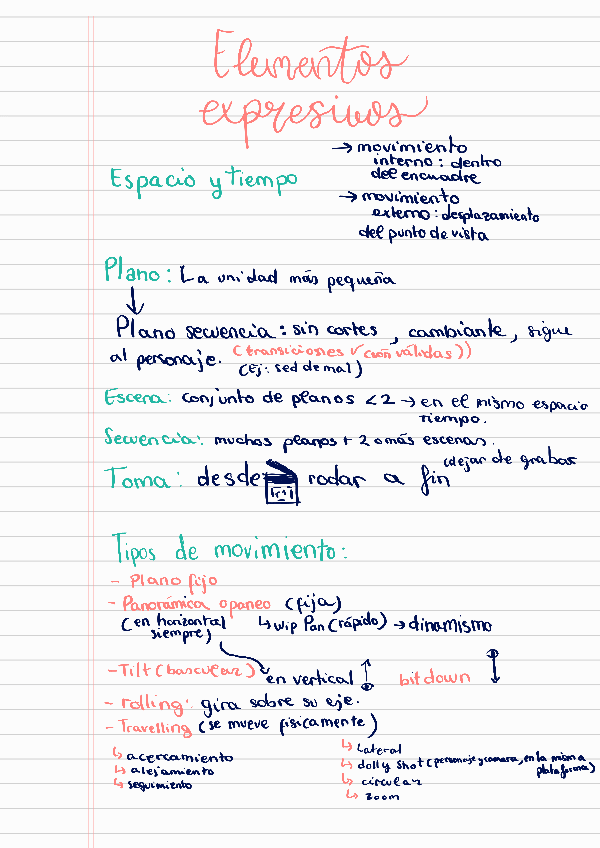 Elementos
expresivos
Espacio y tiempo
→ movimiento
interno: dentro
del encuadre
→ movimiento
externo: desplazamiento
del punto de vista
Plano: La unidad más pequeña
↓
Plano secuencia: sin cortes, cambiante, sigue
al personaje. (transiciones v (son válidas))
(Ej: sed de mal)
Escena: conjunto de planos <2 → en el mismo espacio
tiempo.
Secuencia: muchos planos + 2 o más escenas.
Toma: desde rodar a fin (dejar de grabar
Tipos de movimiento:
- Plano fijo
- Panorámica o paneo (fija)
(en horizontal
siempre)
↳ wip Pan (rápido) → dinamismo
- Tilt (bascular) en vertical bit down
- rolling: gira sobre su eje.
- Travelling (se mueve físicamente)
↳ acercamiento
↳ alejamiento
↳ seguimiento
↳ Lateral
↳ dolly shot (personaje y camara, en la misma
plataforma)
↳ circular
↳ zoom